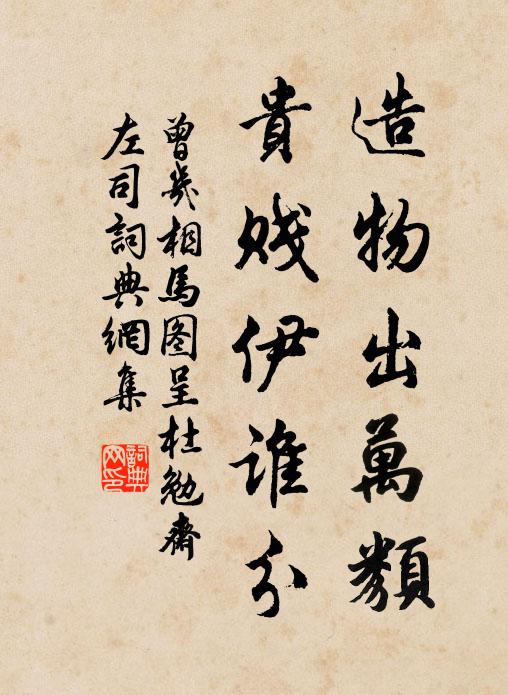 造物出萬類
貴賤伊誰分
曾幾相馬图呈杜勉齋
左司詞典網集
詞典
网印